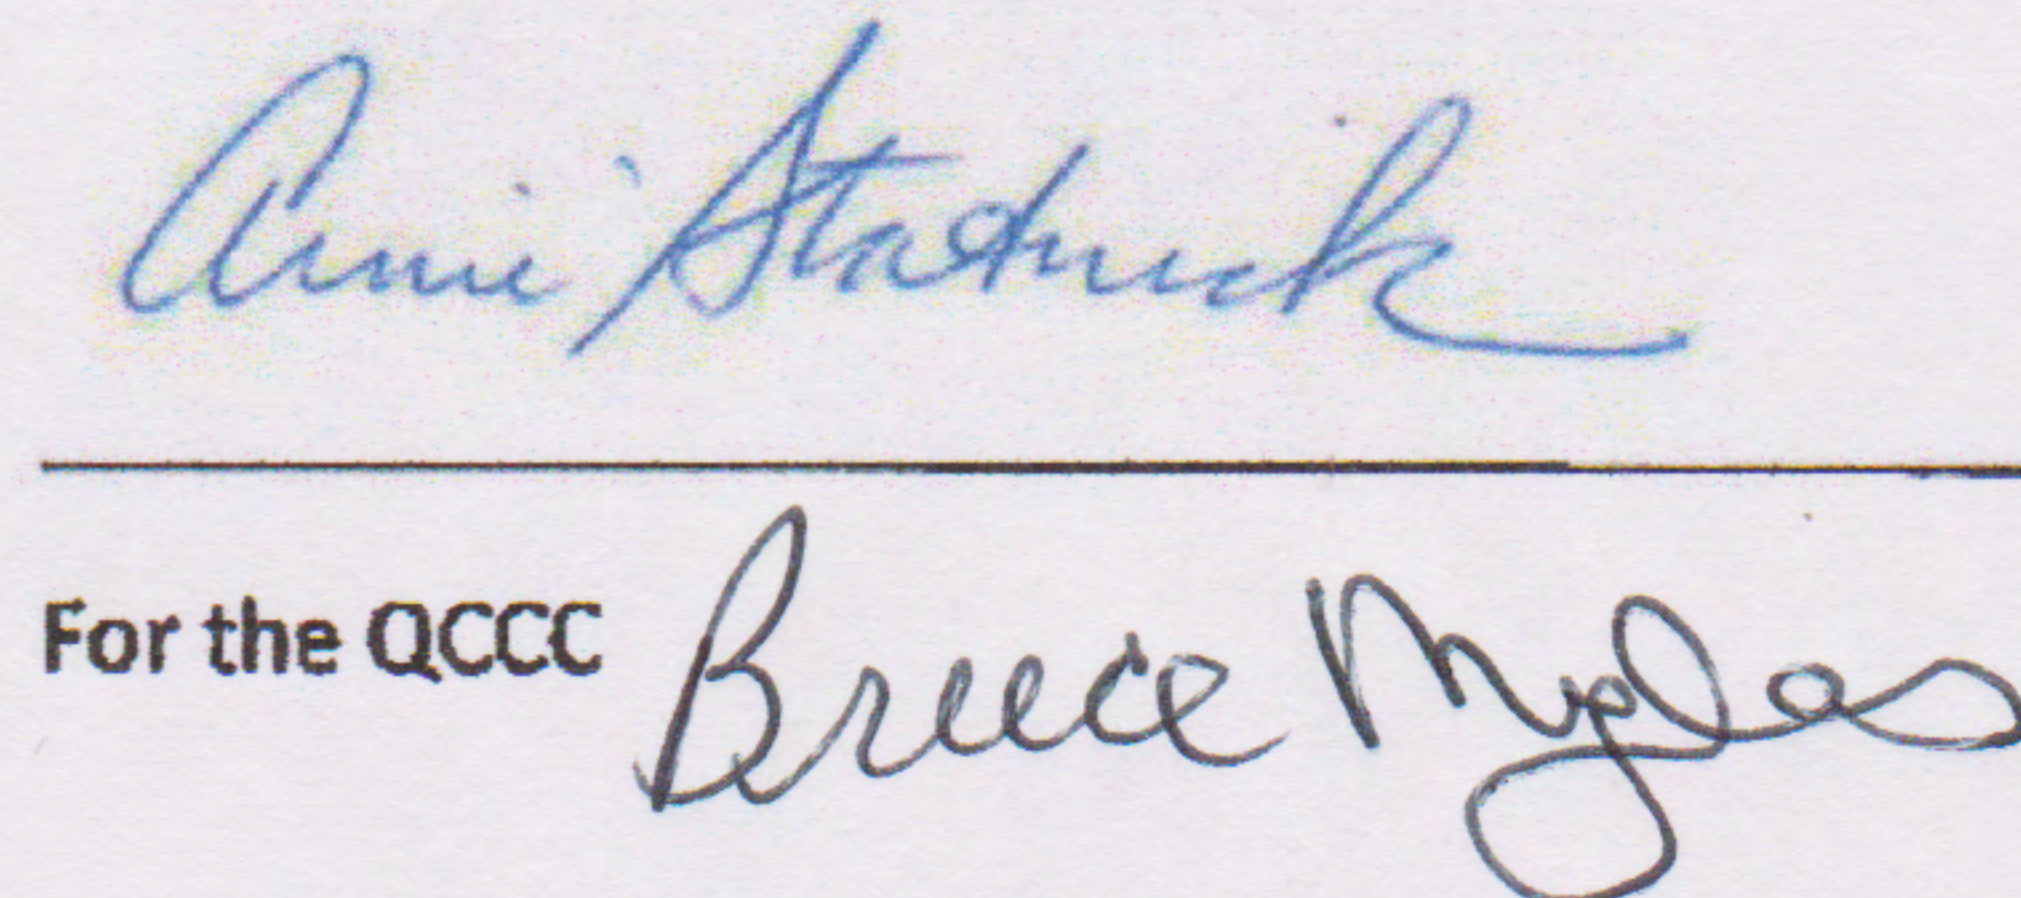 Annie Stadnick
For the QCCC Bruce Myles